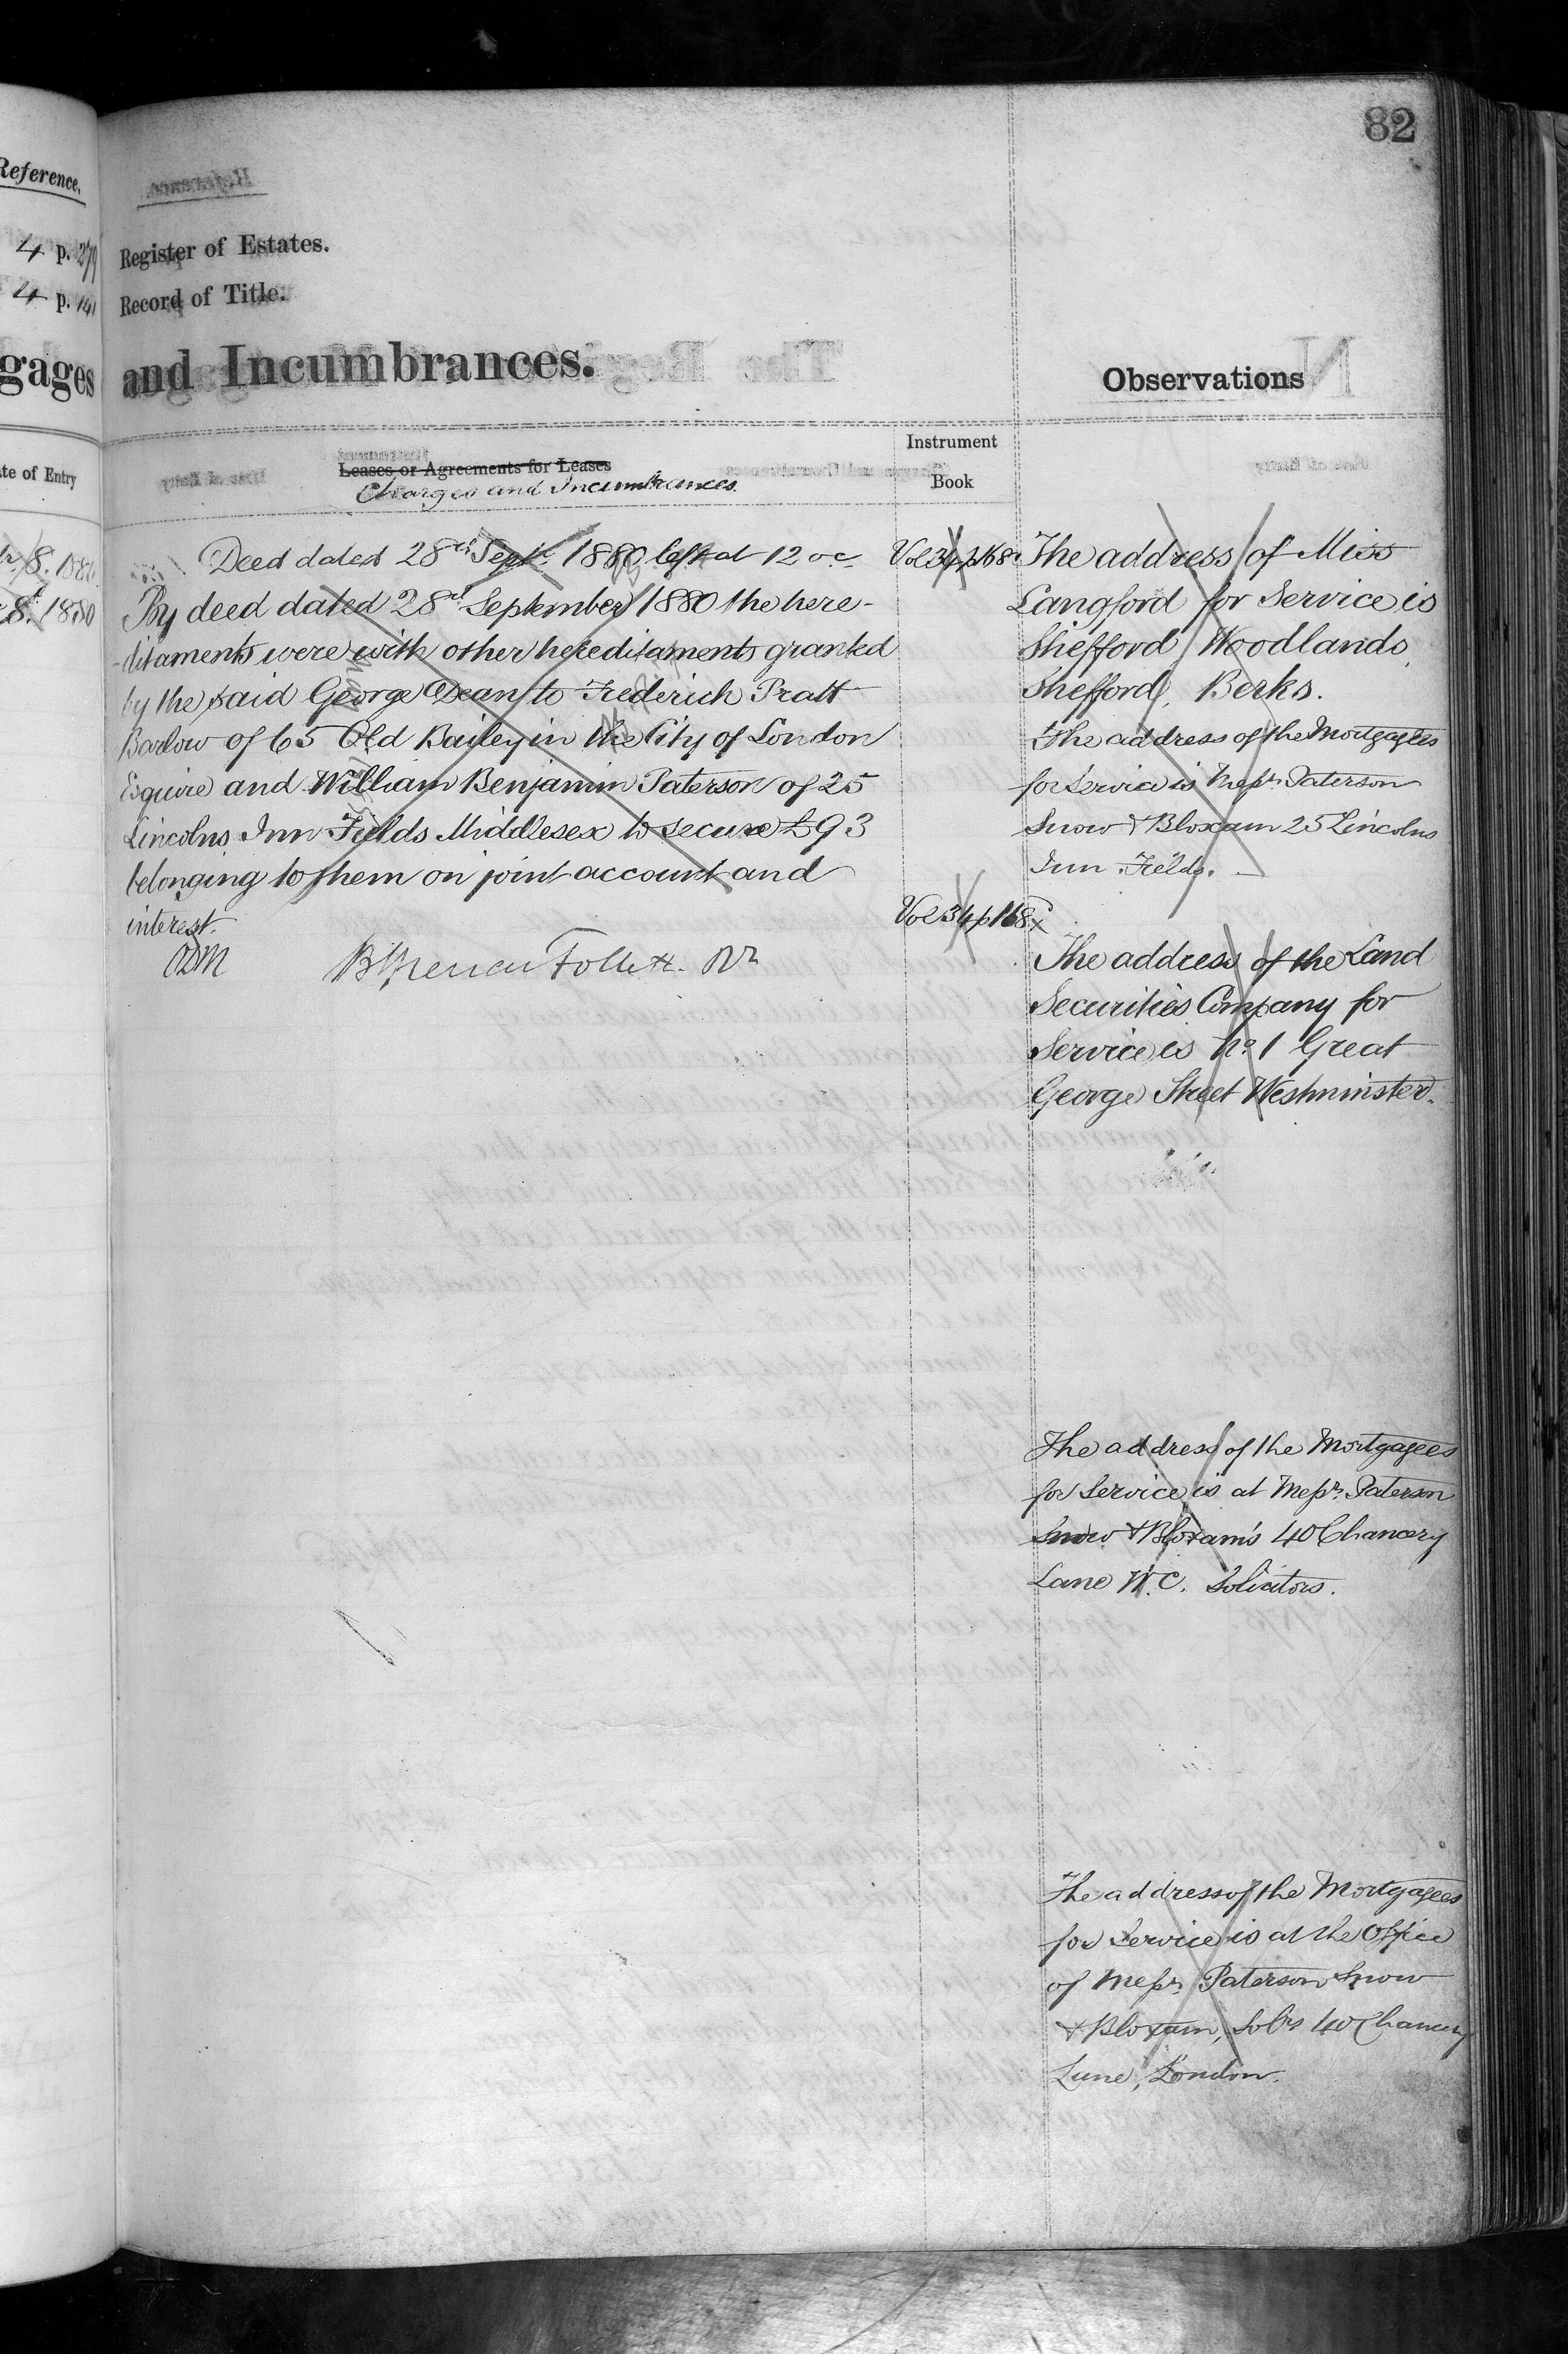 82
Reference.
4 p. 279
4 p. 141
gages
te of Entry
8. 1880
8th 1880
Register of Estates.
Record of Title.
and Incumbrances.
Observations
Leases or Agreements for Leases
Charges and Incumbrances.
Instrument
Book
Deed dated 28th Sept. 1880 left at 12 oc
Vol 34 p 168
By deed dated 28th September 1880 the here-
-ditaments were with other hereditaments granted
by the said George Dean to Frederich Pratt
Barlow of 65 Old Bailey in the City of London
Esquire and William Benjamin Paterson of 25
Lincolns Inn Fields Middlesex to secure £93
belonging to them on joint account and
interest.
Vol 34 p 168
Follett. Rr
The address of Miss
Langford for Service is
Shefford Woodlands,
Shefford, Berks.
The address of the Mortgagees
for Service is Messrs. Paterson
Snow & Bloxam 25 Lincolns
Inn Fields.
The address of the Land
Securities Company for
Service is No. 1 Great
George Street Westminster.
The address of the Mortgagees
for Service is at Messrs. Paterson
Snow & Bloxam's 40 Chancery
Lane W.C. Solicitors.
The address of the Mortgagees
for Service is at the Office
of Messrs. Paterson Snow
& Bloxam, Solrs 40 Chancery
Lane, London.